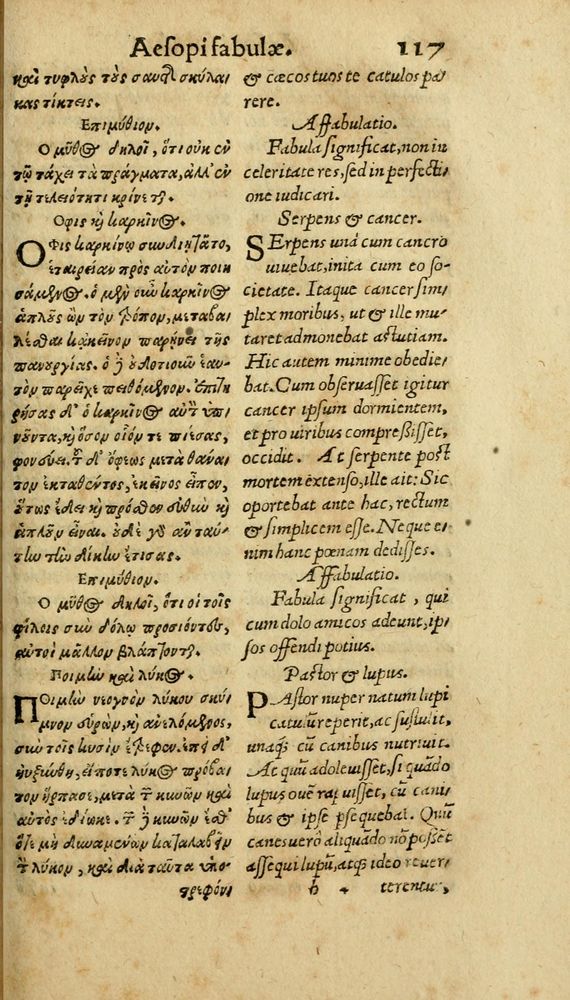 Aesopi fabulæ. 117
καὶ τυφλοὺς τοὺς σαυτῆ σκύλα/
κας τίκτεις.
Επιμύθιον.
Ο μῦθος δηλοῖ, ὅτι οὐκ ἐν
τῷ τάχει τὰ πράγματα, ἀλλ' ἐν
τῇ τελειότητι κρίνεται.
Οφις καὶ καρκῖνος.
Οφις καρκίνῳ συνδιῃτᾶτο,
ἑταιρείαν πρὸς αὐτὸν ποιη
σάμενος. ὁ μὲν οὖν καρκῖνος
ἁπλοῦς ὢν τὸν τρόπον, μεταβα/
λέσθαι κἀκεῖνον παρῄνει τῆς
πανουργίας. ὁ δὲ οὐδοτιοῦν ἑαυ-
τὸν παρεῖχε πειθόμενον. ἐπιτη
ρήσας δ' ὁ καρκῖνος αὐτὸν ὑπ/
νοῦντα, καὶ ὅσον οἷόν τε πιέσας,
φονεύει. τοῦ δ' ὄφεως μετὰ θάνα/
τον ἐκταθέντος, ἐκεῖνος εἶπεν,
οὕτως ἔδει καὶ πρόσθεν εὐθὺν καὶ
ἁπλοῦν εἶναι. οὐδὲ γὰρ ἂν ταύ/
την τὴν δίκην ἔτισας.
Επιμύθιον.
Ο μῦθος δηλοῖ, ὅτι οἱ τοῖς
φίλοις σὺν δόλῳ προσιόντες,
αὐτοὶ μᾶλλον βλάπτονται.
Ποιμὴν καὶ λύκος.
Ποιμὴν νεογνὸν λύκου σκύ/
μνον εὑρὼν, καὶ ἀνελόμενος,
σὺν τοῖς κυσὶν ἔτρεφεν. ἐπεὶ δ'
ηὐξύνθη, εἴποτε λύκος πρόβα/
τον ἥρπασε, μετὰ τῶν κυνῶν καὶ
αὐτὸς ἐδίωκε. τῶν δὲ κυνῶν ἐσθ'
ὅτε μὴ δυναμένων καταλαβεῖν
τὸν λύκον, καὶ διὰ ταῦτα ὑπο/
στρεφόν/
& cæcos tuos te catulos pa/
rere.
Affabulatio.
Fabula significat, non in
celeritate res, sed in perfecti/
one iudicari.
Serpens & cancer.
SErpens unà cum cancro
uiuebat, inita cum eo so-
cietate. Itaque cancer sim/
plex moribus, ut & ille mu/
taret admonebat astutiam.
Hic autem minime obedie/
bat. Cum obseruasset igitur
cancer ipsum dormientem,
et pro uiribus compressisset,
occidit. At serpente post
mortem extenso, ille ait: Sic
oportebat ante hac, rectum
& simplicem esse. Neque e/
nim hanc pœnam dedisses.
Affabulatio.
Fabula significat, qui
cum dolo amicos adeunt, ip/
sos offendi potius.
Pastor & lupus.
PAstor nuper natum lupi
catulū reperit, ac sustulit,
unaq; cū canibus nutriuit.
At quū adoleuisset, si quādo
lupus ouē rapuisset, cū cani/
bus & ipse psequebat. Quū
canes uerò aliquādo nō posset
assequi lupū, atq; ideo reuer/
h 4 terentur,